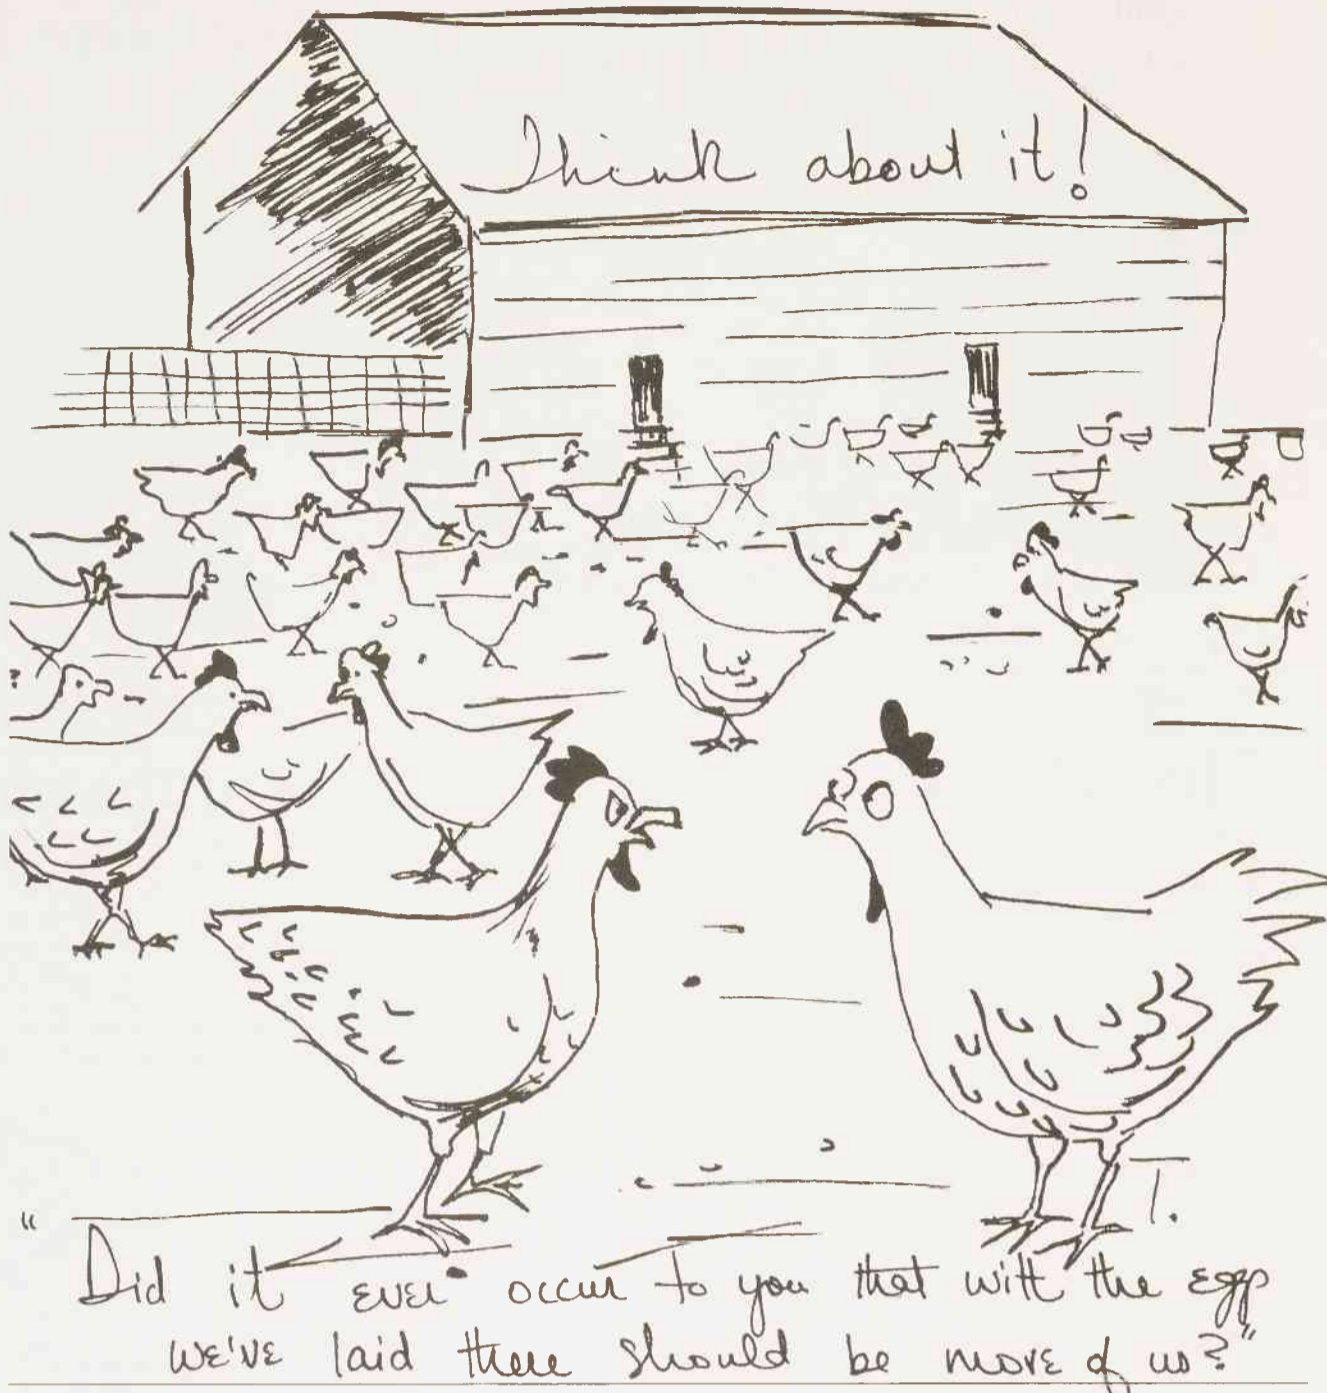 Think about it!
T.
"Did it ever occur to you that with the eggs
we've laid there should be more of us?"